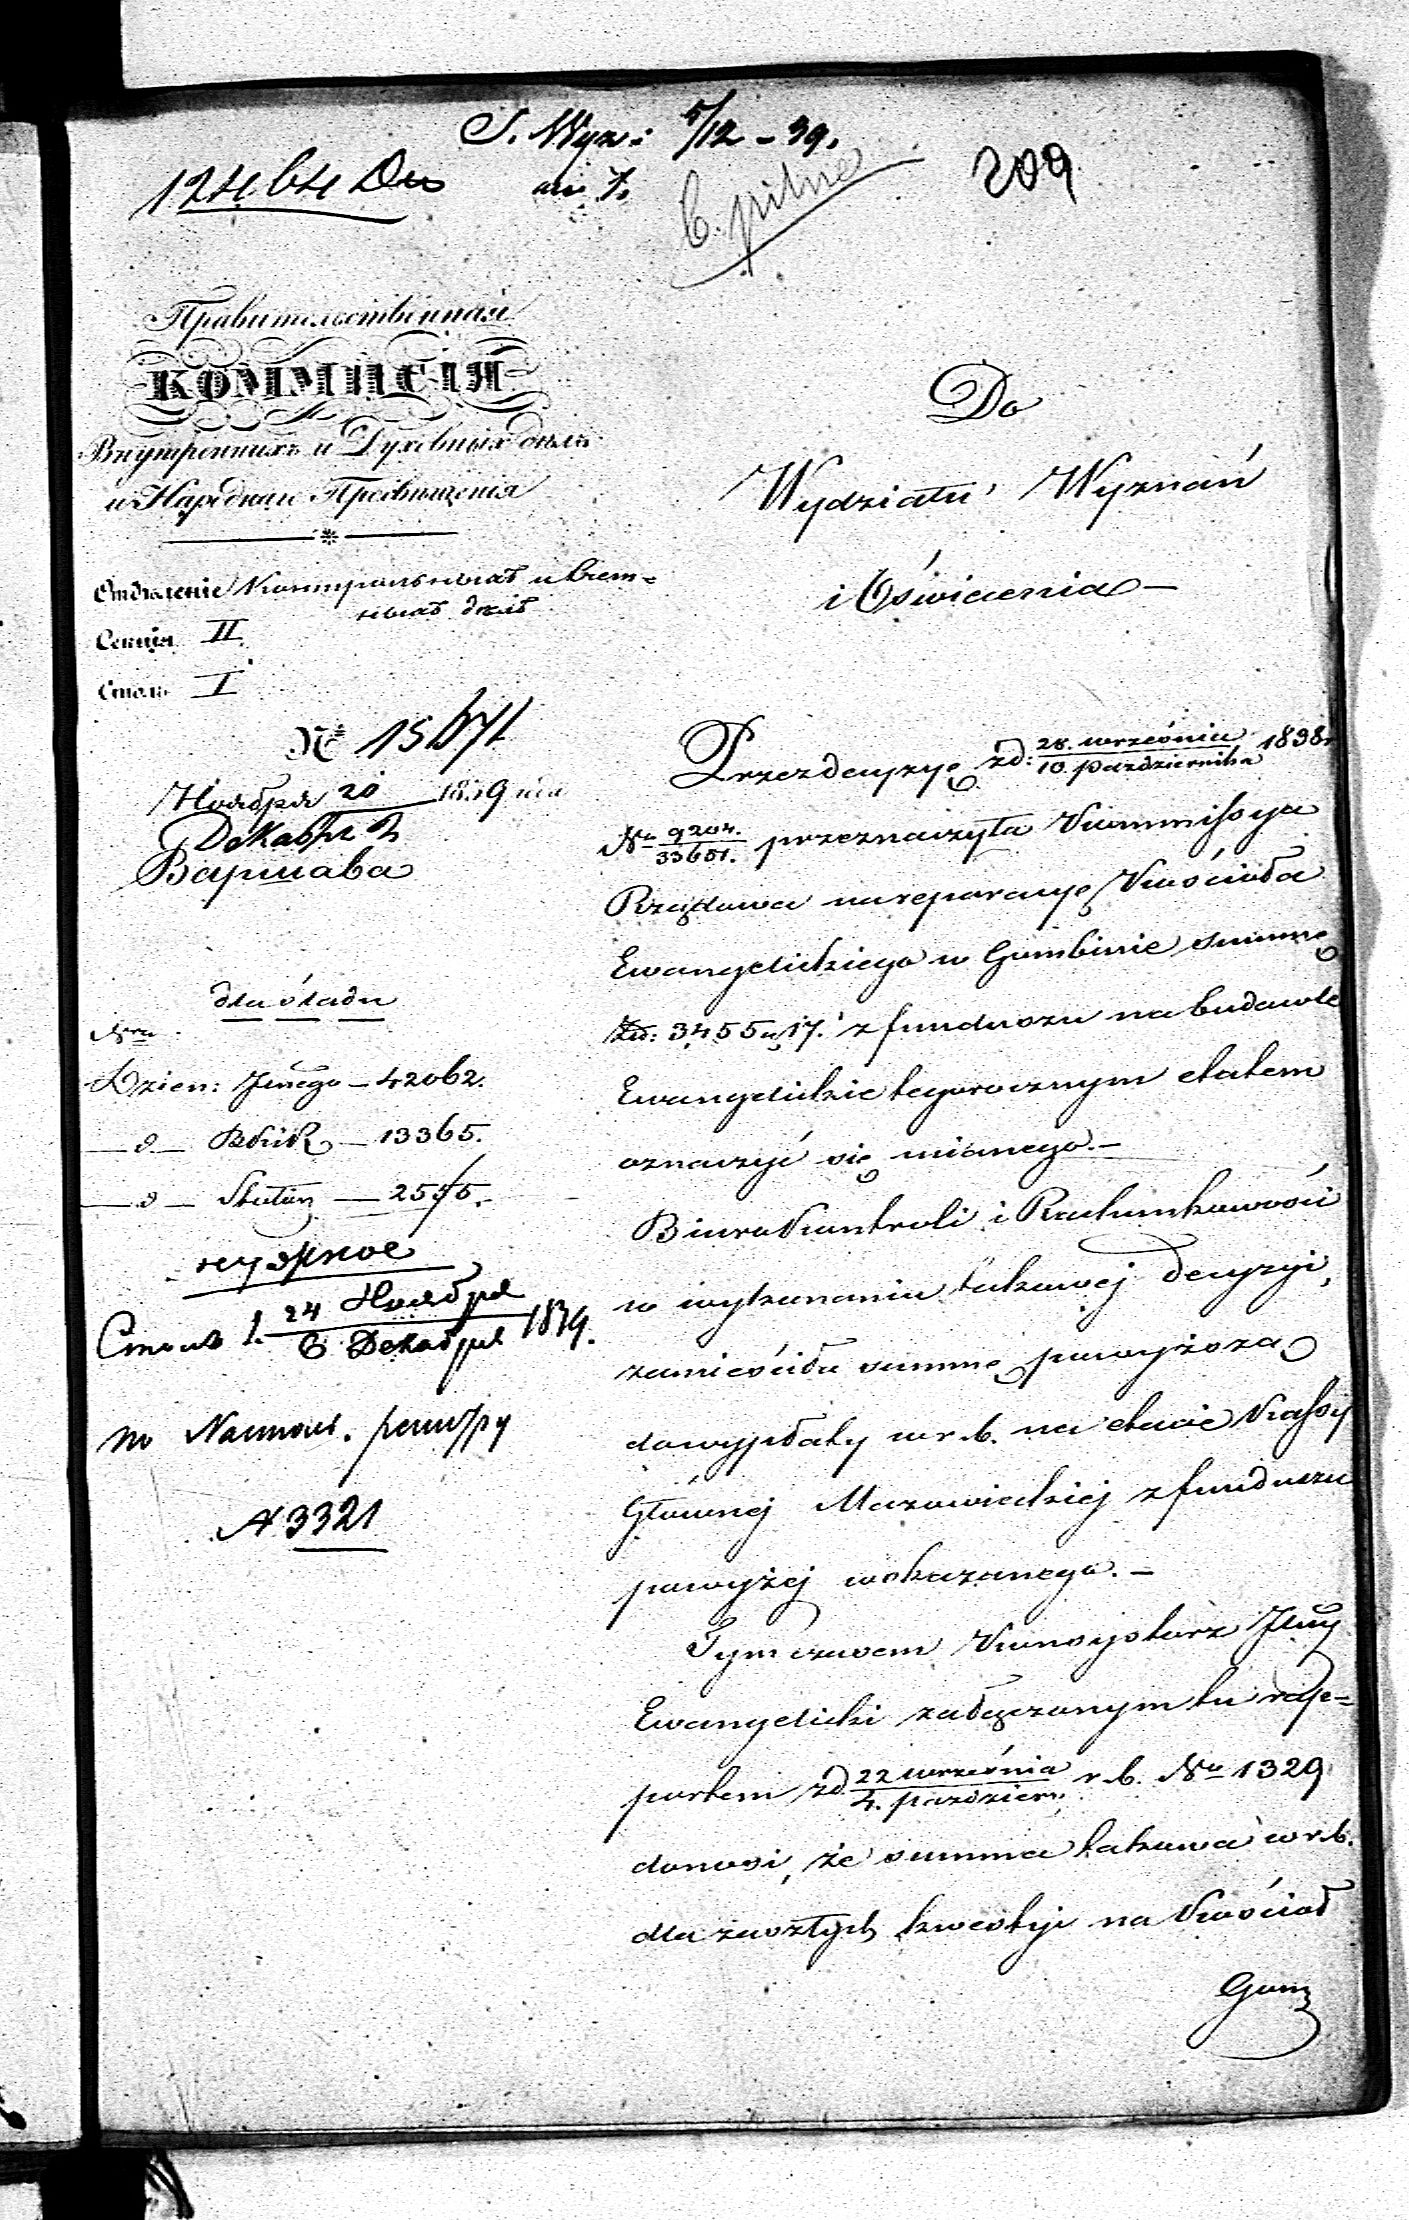 S. Wyz: 5/12 - 39.
12464
B. pilne
209
Правительственная
КОММИСІЯ
Внутреннихъ и Духовныхъ дѣлъ
и Народнаго Просвѣщенія
Отдѣленіе Контрольныхъ и
дѣлъ
Секція II.
Столъ I
№ 15671
Ноября 20 1839 года
Декабря 2
Варшава
dla śladu
Nra
Dzien: Jlnego - 42062.
- d - BKiR - 13365.
- d - - 2555.
нужное
Столъ 1. 24 Ноября / 6 Декабря 1839.
N 3321
Do
Wydziału Wyznań
i Oświecenia -
Przez decyzyę z d: 28. września / 10 października 1838 r
No 9204. / 33651. przeznaczyła Kommissya
Rządowa na reparacyę Kościoła
Ewangelickiego w Gombinie summę
Zł: 3455 g 17. z funduszu na budowle
Ewangelickie tegorocznym etatem
oznaczyć się mianego. -
Biuro Kontroli i Rachunkowości
w wykonaniu takowej decyzyi,
zamieściła summę powyższą
do wypłaty w r. b. na etacie Kassy
Głównej Mazowieckiej z funduszu
powyżej wskazanego. -
Tymczasem Konsystorz Jlny
Ewangelicki załączonym tu rap=
portem z d 22 września / 4. paździer: r. b. No 1329
donosi, że summa takowa w r. b.
dla zaszłych kwestyi na Kościoł
Gom